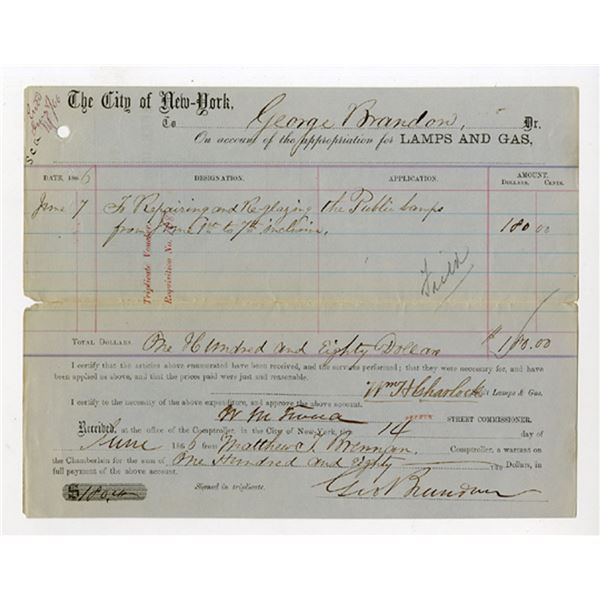 The City of New-York,
To George Brandon, Dr.
On account of the appropriation for LAMPS AND GAS,
DATE, 1866 DESIGNATION. APPLICATION. AMOUNT.
DOLLARS. CENTS.
June 7 To Repairing and Reglazing the Public Lamps 180 00
from June 1st to 7th inclusive.
Triplicate Voucher
Requisition No.
TOTAL DOLLARS. One Hundred and Eighty Dollars $ 180.00
I certify that the articles above enumerated have been received, and the services performed; that they were necessary for, and have
been applied as above, and that the prices paid were just and reasonable.
Wm H Charlock Lamps & Gas.
I certify to the necessity of the above expenditure, and approve the above account.
W M Tweed STREET COMMISSIONER.
Received, at the office of the Comptroller, in the City of New-York, this 14 day of
June 1866 from Matthew T. Brennan, Comptroller, a warrant on
the Chamberlain for the sum of One Hundred and Eighty Dollars, in
full payment of the above account.
$180.00 Signed in triplicate. Geo Brandon